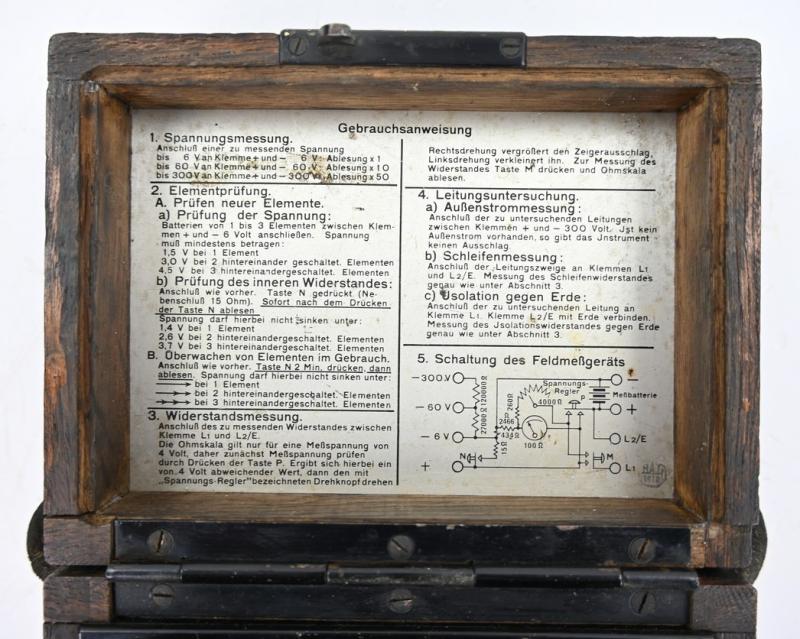 Gebrauchsanweisung
1. Spannungsmessung.
Anschluß einer zu messenden Spannung
bis 6 V an Klemme + und - 6 V: Ablesung x 1
bis 60 V an Klemme + und - 60 V: Ablesung x 10
bis 300 V an Klemme + und - 300 V: Ablesung x 50
2. Elementprüfung.
A. Prüfen neuer Elemente.
a) Prüfung der Spannung:
Batterien von 1 bis 3 Elementen zwischen Klem-
men + und - 6 Volt anschließen. Spannung
muß mindestens betragen:
1,5 V bei 1 Element
3,0 V bei 2 hintereinander geschaltet. Elementen
4,5 V bei 3 hintereinandergeschaltet. Elementen
b) Prüfung des inneren Widerstandes:
Anschluß wie vorher. Taste N gedrückt (Ne-
benschluß 15 Ohm). Sofort nach dem Drücken
der Taste N ablesen
Spannung darf hierbei nicht sinken unter:
1,4 V bei 1 Element
2,6 V bei 2 hintereinandergeschaltet. Elementen
3,7 V bei 3 hintereinandergeschaltet. Elementen
B. Überwachen von Elementen im Gebrauch.
Anschluß wie vorher. Taste N 2 Min. drücken, dann
ablesen. Spannung darf hierbei nicht sinken unter:
bei 1 Element
bei 2 hintereinandergeschaltet. Elementen
bei 3 hintereinandergeschaltet. Elementen
3. Widerstandsmessung.
Anschluß des zu messenden Widerstandes zwischen
Klemme L1 und L2/E.
Die Ohmskala gilt nur für eine Meßspannung von
4 Volt, daher zunächst Meßspannung prüfen
durch Drücken der Taste P. Ergibt sich hierbei ein
von 4 Volt abweichender Wert, dann den mit
„Spannungs-Regler" bezeichneten Drehknopf drehen
Rechtsdrehung vergrößert den Zeigerausschlag,
Linksdrehung verkleinert ihn. Zur Messung des
Widerstandes Taste M drücken und Ohmskala
ablesen.
4. Leitungsuntersuchung.
a) Außenstrommessung:
Anschluß der zu untersuchenden Leitungen
zwischen Klemmen + und - 300 Volt. Jst kein
Außenstrom vorhanden, so gibt das Jnstrument
keinen Ausschlag.
b) Schleifenmessung:
Anschluß der Leitungszweige an Klemmen L1
und L2/E. Messung des Schleifenwiderstandes
genau wie unter Abschnitt 3.
c) Jsolation gegen Erde:
Anschluß der zu untersuchenden Leitung an
Klemme L1. Klemme L2/E mit Erde verbinden.
Messung des Jsolationswiderstandes gegen Erde
genau wie unter Abschnitt 3.
5. Schaltung des Feldmeßgeräts
-300V
120000Ω
-60V
27000Ω
-6V
+
N
15Ω
2466
434Ω
260Ω
100Ω
Spannungs-
Regler
4000Ω
P
-
Meßbatterie
+
L2/E
M
L1